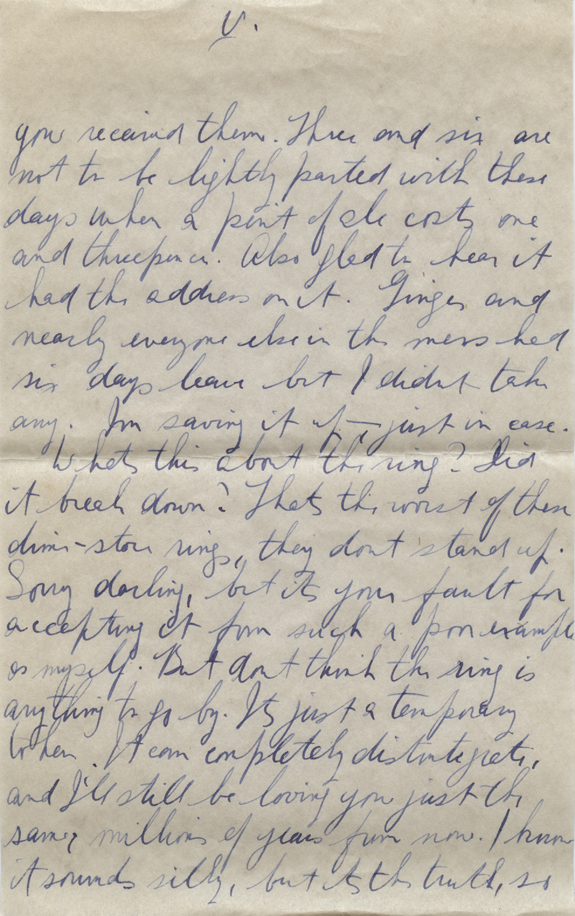 V.
you received them. Three and six are
not to be lightly parted with these
days when a pint of ale costs one
and threepence. Also glad to hear it
had the address on it. Ginger and
nearly everyone else in the mess had
six days leave but I didnt take
any. Im saving it up — just in case.
Whats this about the ring? Did
it break down? Thats the worst of these
dime-store rings, they dont stand up.
Sorry darling, but its your fault for
accepting it from such a poor example
as myself. But dont think the ring is
anything to go by. Its just a temporary
token. It can completely distintegrate,
and I'll still be loving you just the
same, millions of years from now. I know
it sounds silly, but its the truth, so